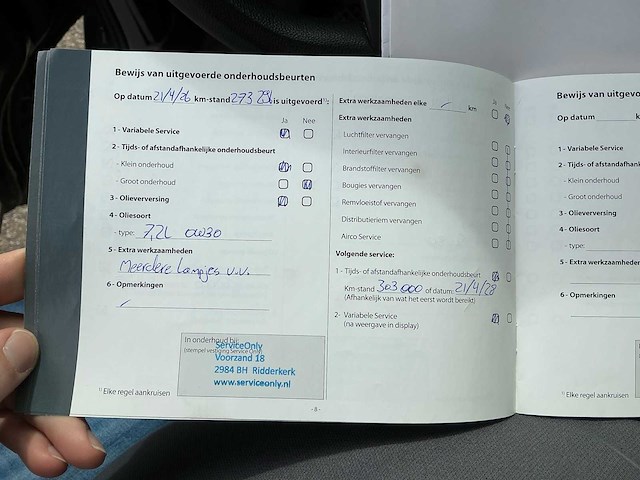 Bewijs van uitgevoerde onderhoudsbeurten
Op datum 21/4/26 km-stand 273 291 is uitgevoerd¹⁾:
Ja Nee
1 - Variabele Service
2 - Tijds- of afstandafhankelijke onderhoudsbeurt
- Klein onderhoud
- Groot onderhoud
3 - Olieverversing
4 - Oliesoort
- type: 7,2L 0W30
5 - Extra werkzaamheden
Meerdere Lampjes v.v.
6 - Opmerkingen
In onderhoud bij:
(stempel vestiging Service Only)
ServiceOnly
Voorzand 18
2984 BH Ridderkerk
www.serviceonly.nl
¹⁾ Elke regel aankruisen
- 8 -
Ja Nee
Extra werkzaamheden elke km
Extra werkzaamheden
Luchtfilter vervangen
Interieurfilter vervangen
Brandstoffilter vervangen
Bougies vervangen
Remvloeistof vervangen
Distributieriem vervangen
Airco Service
Volgende service:
1 - Tijds- of afstandafhankelijke onderhoudsbeurt
Km-stand 303 000 of datum: 21/4/28
(Afhankelijk van wat het eerst wordt bereikt)
2- Variabele Service
(na weergave in display)
Bewijs van uitgevo
Op datum k
1 - Variabele Service
2 - Tijds- of afstandafha
- Klein onderhoud
- Groot onderhoud
3 - Olieverversing
4 - Oliesoort
- type:
5 - Extra werkzaamheden
6 - Opmerkingen
¹⁾ Elke regel aankruisen